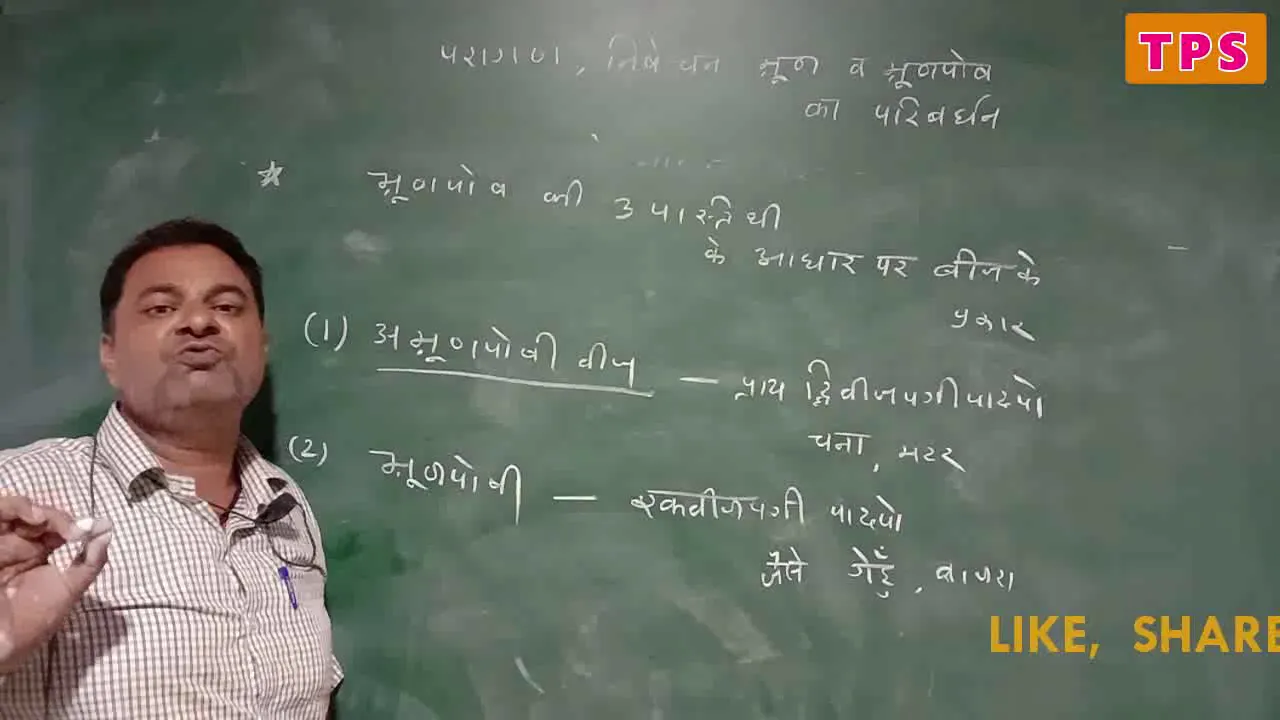 TPS
परागण, निषेचन भ्रूण व भ्रूणपोष
का परिवर्धन
* भ्रूणपोष की उपास्तिथी
के आधार पर बीज के
प्रकार
(1) अभ्रूणपोषी बीज — प्राय द्विबीजपत्री पादपो
चना, मटर
(2) भ्रूणपोषी — एकबीजपत्री पादपो
जैसे गेहूँ, बाजरा
LIKE, SHARE